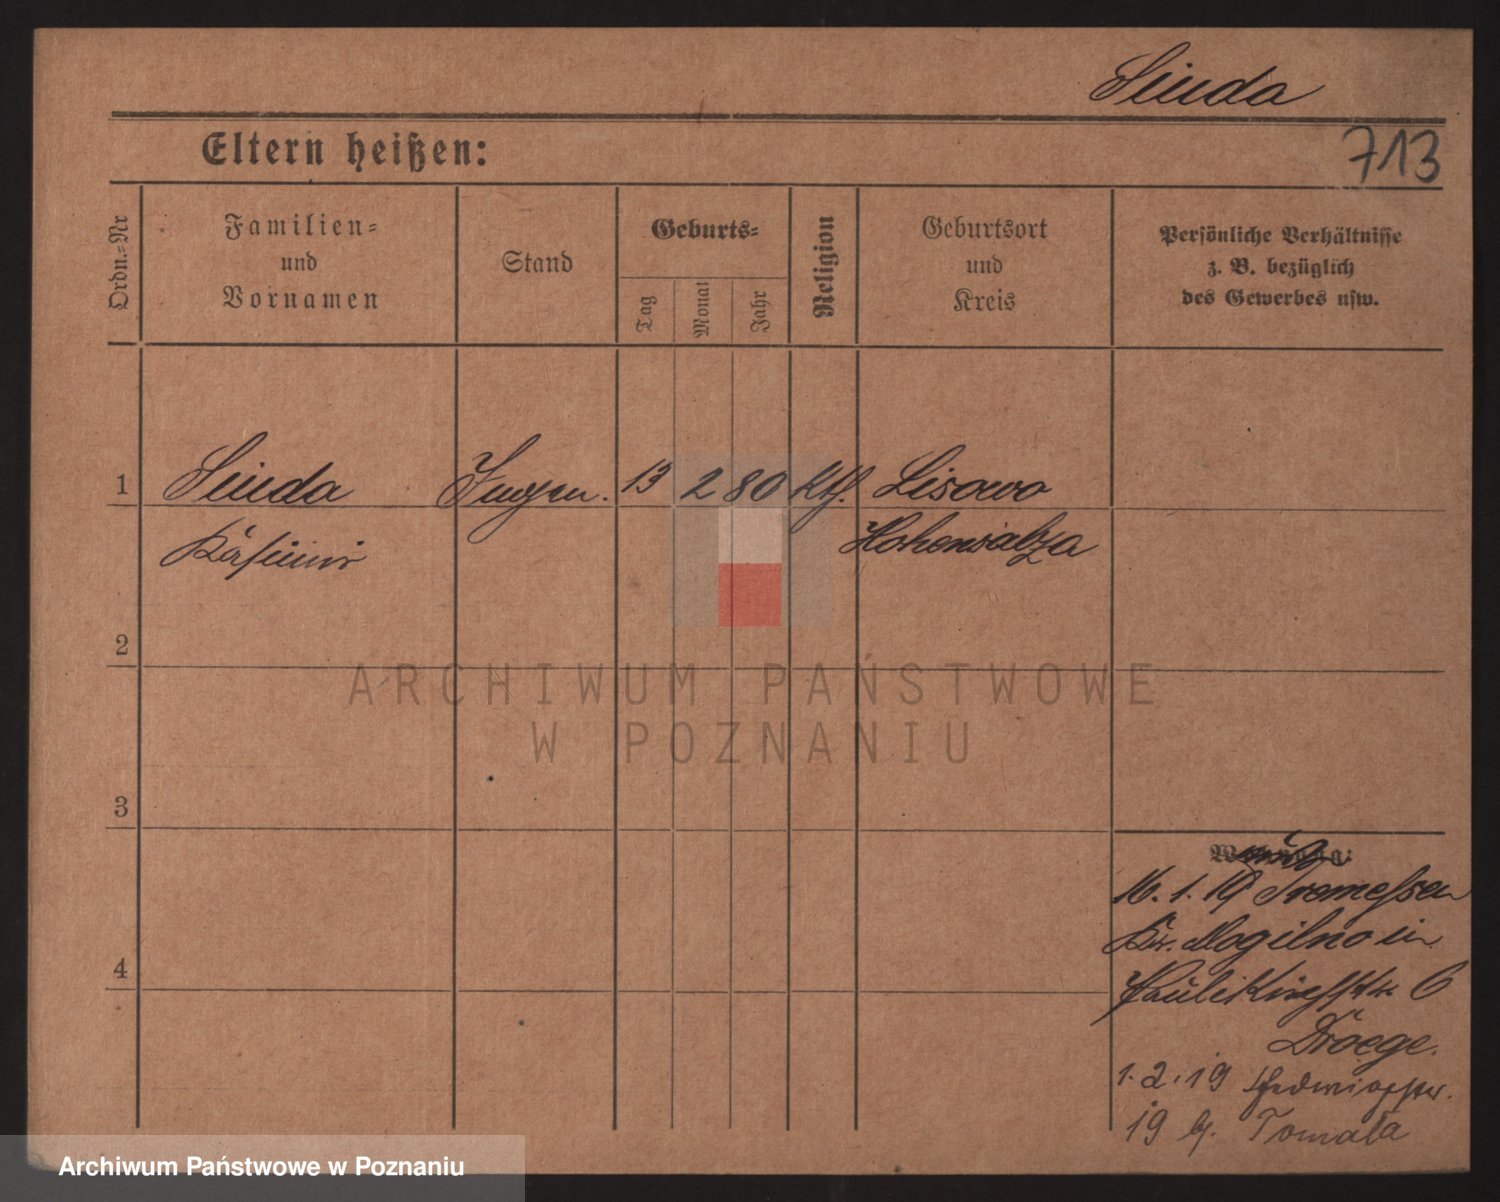 Siuda
Eltern heißen:
713
Ordn.-Nr
Familien-
und
Vornamen
Stand
Geburts-
Tag
Monat
Jahr
Religion
Geburtsort
und
Kreis
Persönliche Verhältnisse
z. B. bezüglich
des Gewerbes usw.
1
Siuda
13 2 80 Kth. Lisowo
Hohensalza
2
ARCHIWUM PAŃSTWOWE
W POZNANIU
3
Wohnung:
16.1.19 Tremessen
Kr. Mogilno in
Paulikirchstr 6
Droege.
4
1.2.19 Hedwigstr.
19 b. Tomala
Archiwum Państwowe w Poznaniu